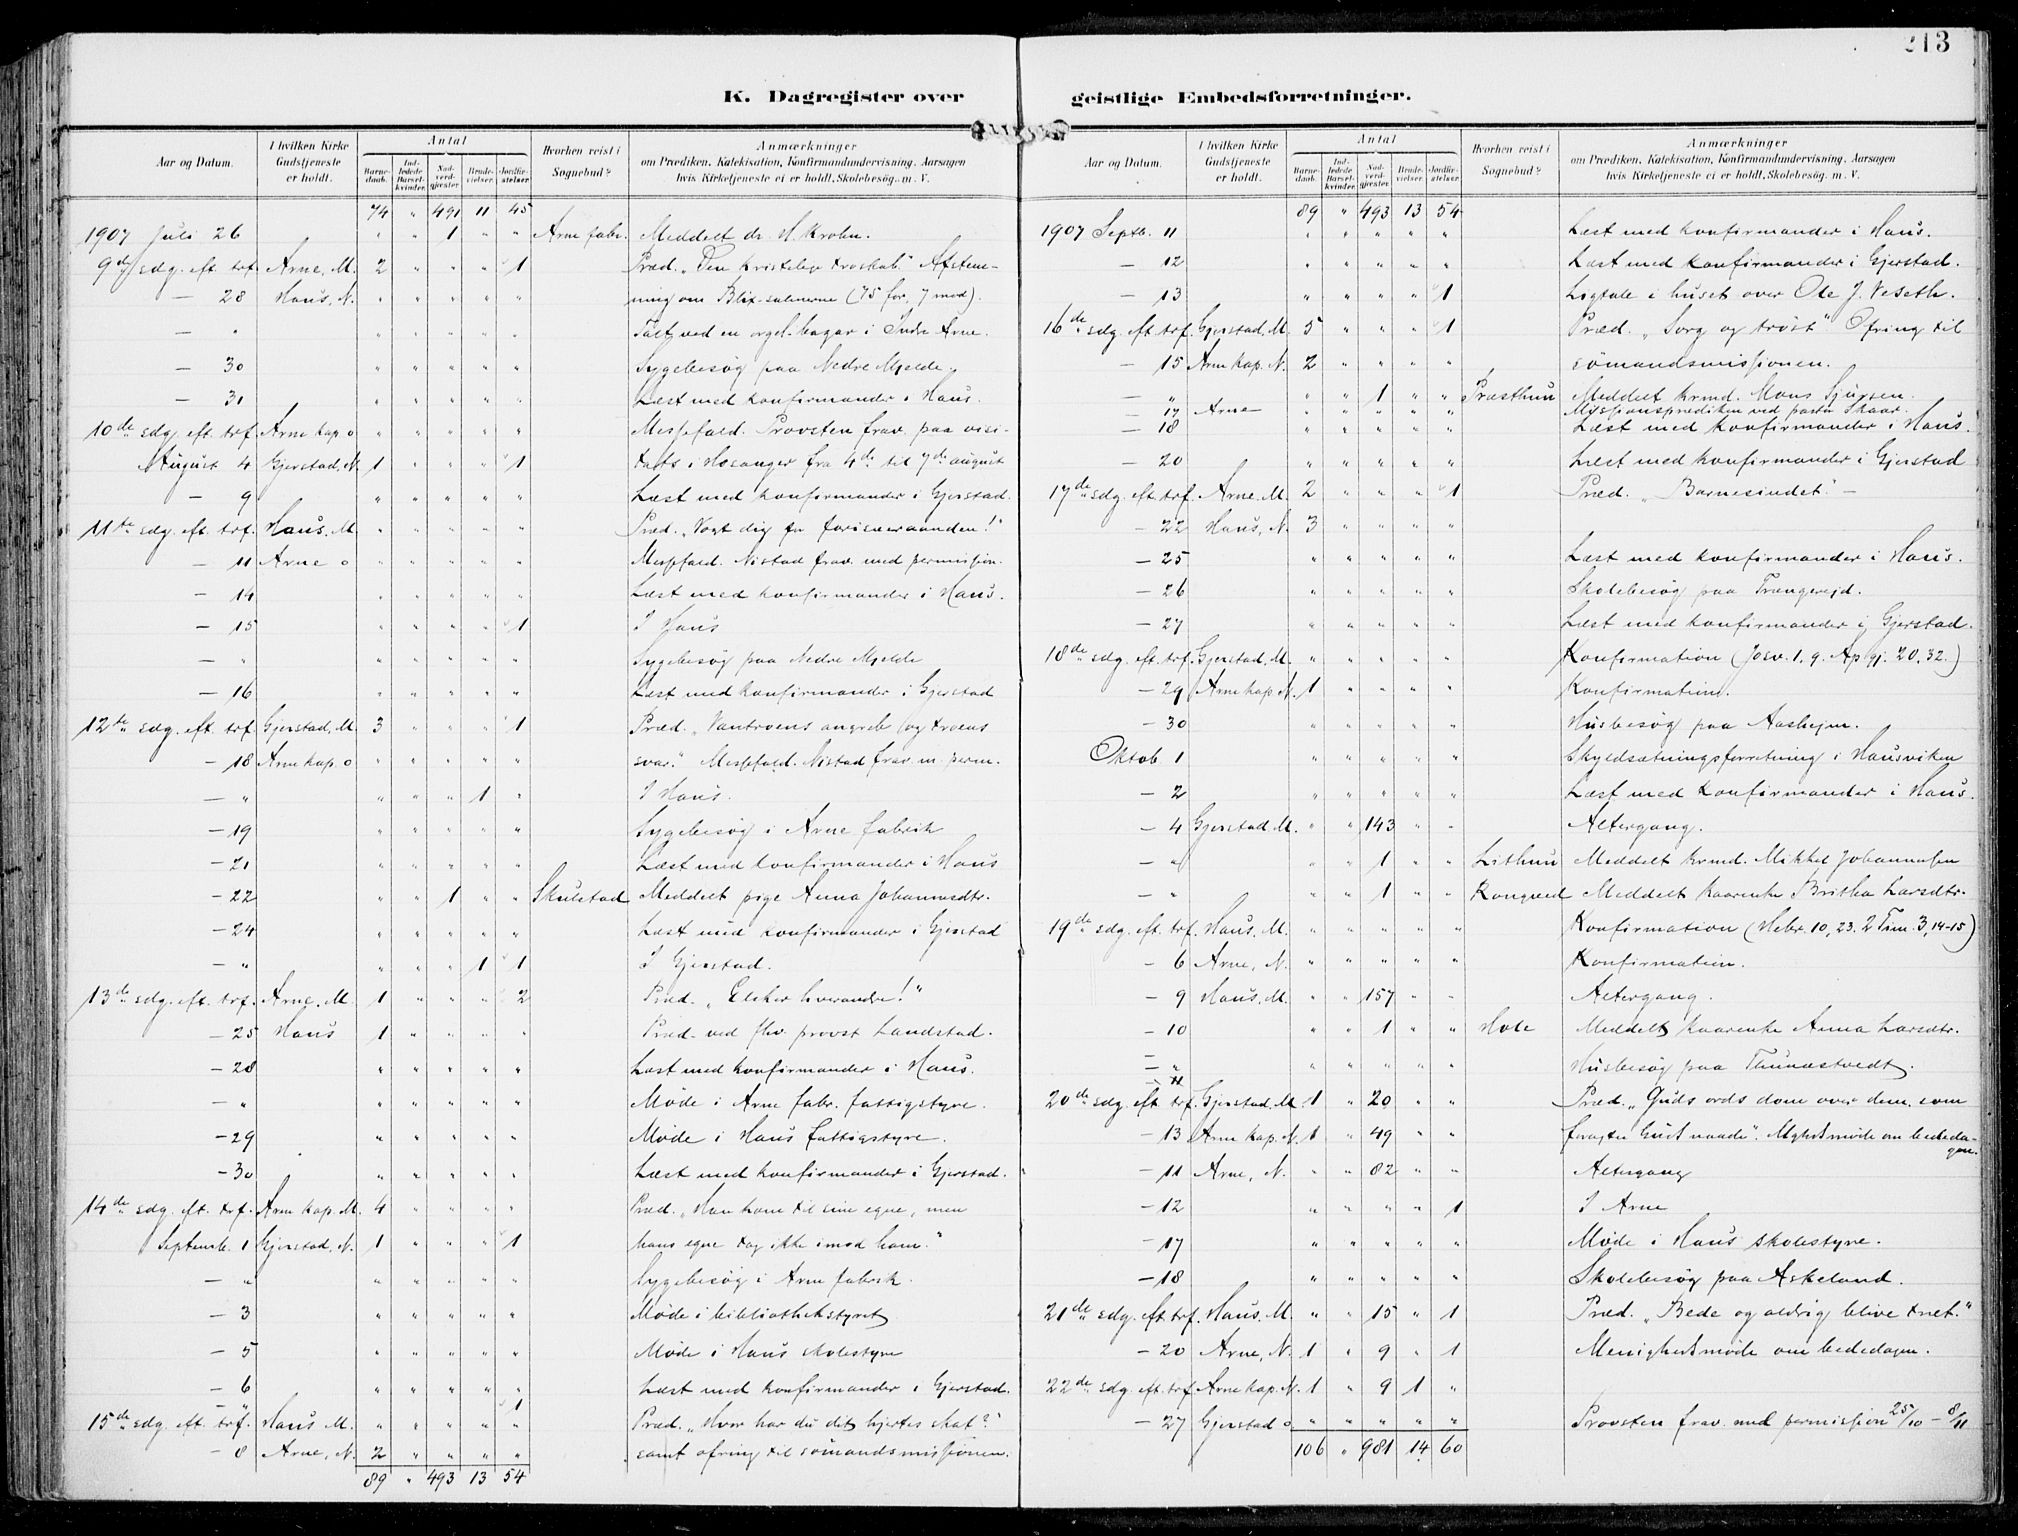 213
K. Dagregister over geistlige Embedsforretninger.
Aar og Datum. | I hvilken Kirke Gudstjeneste er holdt. | Antal | Barnedaab. | Indledede Barselkvinder. | Nadverdgjester | Brudevielser. | Jordfæstelser. | Hvorhen reist i Sognebud? | Anmærkninger om Prædiken, Katekisation, Konfirmandundervisning, Aarsagen hvis Kirketjeneste ei er holdt, Skolebesög. m. V.
74 " 491 11 45
1907 Juli 26 " " 1 " " Arne fabr. Meddelt dr. H. Krohn.
9de sdg. eft. trf. Arne, M. 2 " " " 1 Præd. „Den kristelige troskab." Afstem-
— 28 Haus, N. " " " " " ning om Blix-salmerne (75 for, 7 mod).
— " " " " " " Talt ved en orgel-bazar i Indre Arne.
— 30 " " " " " Sygebesøg paa Nedre Mjelde.
— 31 " " " " " Læst med konfirmander i Haus.
10de sdg. eft. trf. Arne kap. o " " " " " Messefald. Provsten frav. paa visi-
August 4 Gjerstad, N. 1 " " " 1 tats i Hosanger fra 4de til 7de august
— 9 " " " " " Læst med konfirmander i Gjerstad.
11te sdg. eft. trf. Haus, M. " " " " " Præd. „Vogt dig for farisæeraanden!"
— 11 Arne o " " " " " Messefald. Nistad frav. med permission.
— 14 " " " " " Læst med konfirmander i Haus.
— 15 " " " " 1 I Haus
— " " " " " " Sygebesøg paa Nedre Mjelde
— 16 " " " " " Læst med konfirmander i Gjerstad
12te sdg. eft. trf. Gjerstad, M. 3 " " " 1 Præd. „Vantroens angreb og troens
— 18 Arne kap. o " " " " " svar." Messefald. Nistad frav. m. perm.
— " " " " 1 " I Haus.
— 19 " " " " " Sygebesøg i Arne fabrik
— 21 " " " " " Læst med konfirmander i Haus
— 22 " " 1 " " Skulstad Meddelt pige Anna Johannesdtr.
— 24 " " " " " Læst med konfirmander i Gjerstad
— " " " " 1 1 I Gjerstad.
13de sdg. eft. trf. Arne, M. 1 " " " 2 Præd. „Elsker hverandre!"
— 25 Haus 1 " " " " Præd. ved fhv. provst Landstad.
— 28 " " " " " Læst med konfirmander i Haus.
— " " " " " " Møde i Arne fabr. fattigstyre.
— 29 " " " " " Møde i Haus fattigstyre.
— 30 " " " " " Læst med konfirmander i Gjerstad.
14de sdg. eft. trf. Arne kap. M. 4 " " " " Præd. „Han kom til sine egne, men
Septemb. 1 Gjerstad, N. 1 " " " 1 hans egne tog ikke imod ham."
— " " " " " " Sygebesøg i Arne fabrik.
— 3 " " " " " Møde i bibliothekstyret
— 5 " " " " " Møde i Haus skolestyre
— 6 " " " " " Læst med konfirmander i Gjerstad.
— " 1
15de sdg. eft. trf. Haus M. " " " " " Præd. „Hvor har du dit hjertes skat?"
— 8 Arne, N. 2 " " " " samt ofring til sømandsmissionen.
89 " 493 13 54
Aar og Datum. | I hvilken Kirke Gudstjeneste er holdt. | Antal | Barnedaab. | Indledede Barselkvinder. | Nadverdgjester | Brudevielser. | Jordfæstelser. | Hvorhen reist i Sognebud? | Anmærkninger om Prædiken, Katekisation, Konfirmandundervisning, Aarsagen hvis Kirketjeneste ei er holdt, Skolebesög. m. V.
89 " 493 13 54
1907 Septb. 11 " " " " " Læst med konfirmander i Haus.
— 12 " " " " " Læst med konfirmander i Gjerstad.
— 13 " " " " 1 Ligtale i huset over Ole J. Veseth.
16de sdg. eft. trf. Gjerstad, M. 5 " " " 1 Præd. „Sorg og trøst" Ofring til
— 15 Arne kap. N. 2 " " " " sömandsmissionen.
— " " " 1 " " Præsthun Meddelt krmd. Mons Sjursen.
— 17 Arne " " " " " Missionsprædiken ved pastor Skaar.
— 18 " " " " " Læst med konfirmander i Haus.
— 20 " " " " " Læst med konfirmander i Gjerstad
17de sdg. eft. trf. Arne, M. 2 " " " 1 Præd. „Barnesindet." —
— 22 Haus, N. 3 " " " "
— 25 " " " " " Læst med konfirmander i Haus.
— 26 " " " " " Skolebesøg paa Trængereid.
— 27 " " " " " Læst med konfirmander i Gjerstad.
18de sdg. eft. trf. Gjerstad, M. " " " " " Konfirmation (Josv. 1, 9. Ap. gj. 20, 32.)
— 29 Arne kap. N. 1 " " " " Konfirmation.
— 30 " " " " " Husbesøg paa Aasheim.
Oktob. 1 " " " " " Skyldsætningsforretning i Hausviken
— 2 " " " " " Læst med konfirmander i Haus.
— 4 Gjerstad, M. " " 143 " " Altergang.
— " " " 1 " " Lithun Meddelt krmd. Mikkel Johannessen
— " " " 1 " " Rongved Meddelt kaarenke Britha Larsdtr.
19de sdg. eft. trf. Haus, M. " " " " " Konfirmation (Hebr. 10, 23. 2 Tim. 3, 14-15)
— 6 Arne, N. " " " " " Konfirmation.
— 9 Haus, M. " " 157 " " Altergang.
— 10 " " 1 " " Hole Meddelt kaarenke Anna Larsdtr.
— " " " " " " Husbesøg paa Thunestvedt.
20de sdg. eft. trf. Gjerstad, M. 1 " 20 " " Præd. „Guds ords dom over dem, som
— 13 Arne kap. N. 1 " 49 " " foragter Guds naade". Mghedsmøde om bededagen.
— 11 Arne, N. " " 82 " " Altergang
— 12 " " " " 1 I Arne
— 17 " " " " " Møde i Haus skolestyre.
— 18 " " " " " Skolebesøg paa Askeland.
21de sdg. eft. trf. Haus, M. " " 15 " 1 Præd. „Bede og aldrig blive træt."
— 20 Arne, N. 1 " 9 " 1 Menighedsmøde om bededagen.
22de sdg. eft. trf. Arne kap. N. 1 " 9 1 "
— 27 Gjerstad o " " " " " Provsten frav. med permission 25/10 — 8/11
106 " 981 14 60